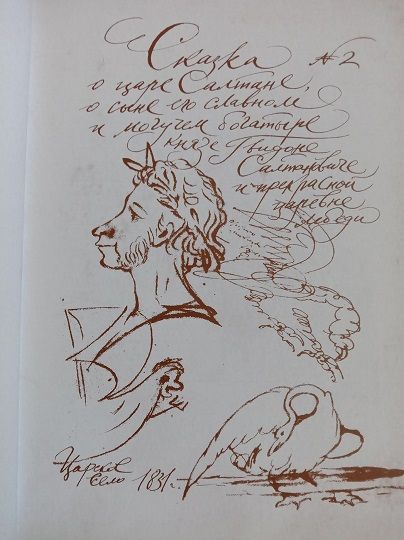 Сказка №2
о царе Салтане,
о сыне его славном
и могучем богатыре
князе Гвидоне
Салтановиче
и прекрасной
царевне
лебеди
Царское
Село 1831 г.